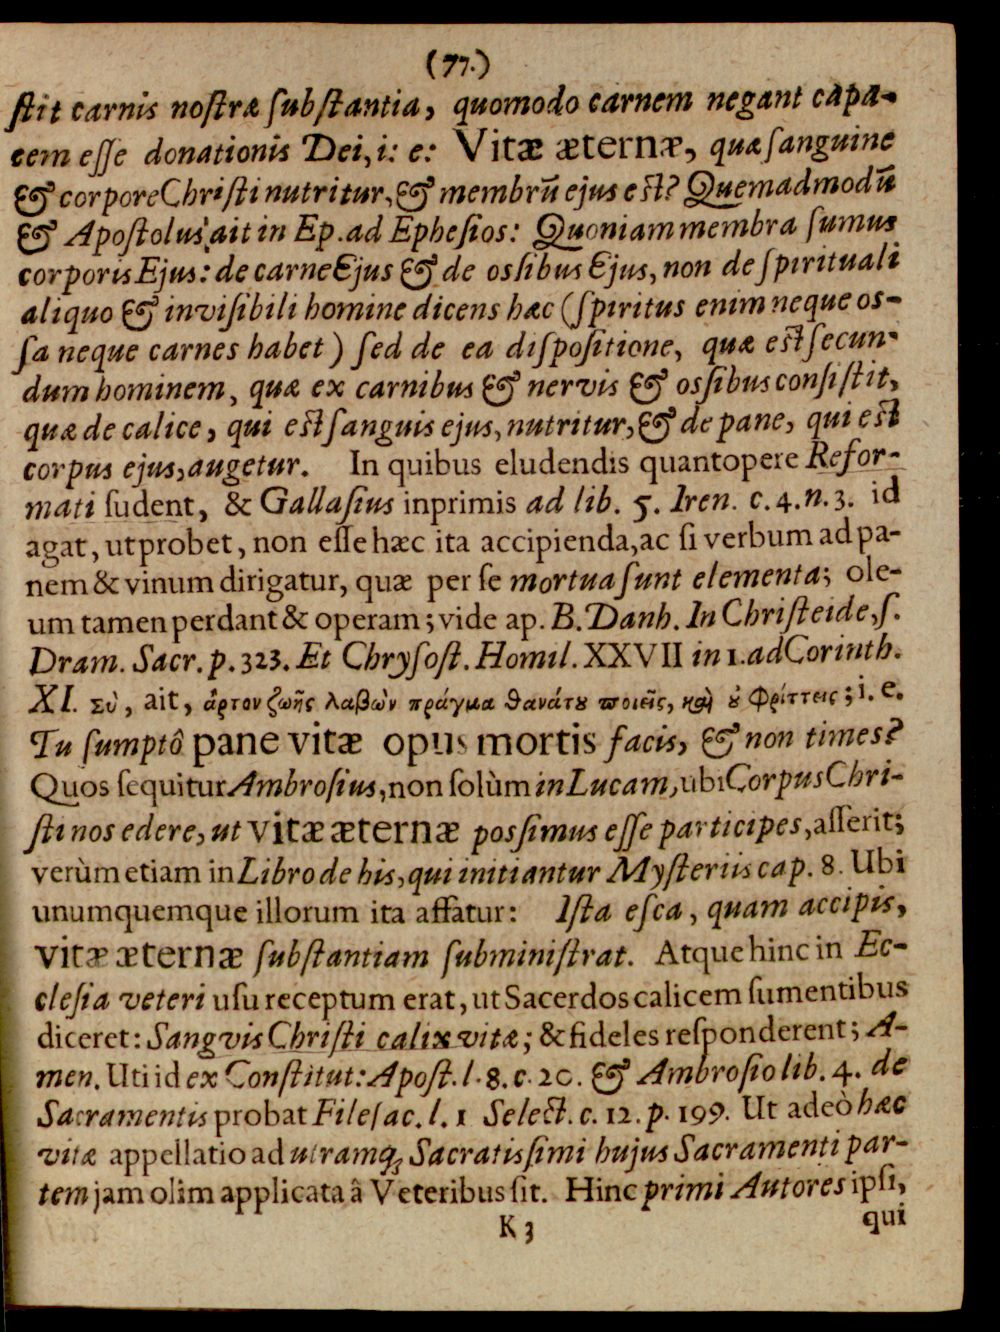 (77.)
ſtit carnis noſtræ ſubſtantia, quomodo carnem negant capa-
cem eſſe donationis Dei, i: e: Vitæ æternæ, quæ ſanguine
& corpore Chriſti nutritur, & membrũ ejus eſt? Quemadmodũ
& Apoſtolus ait in Ep. ad Epheſios: Quoniam membra ſumus
corporis Ejus: de carne Ejus & de oſſibus Ejus, non de ſpirituali
aliquo & inviſibili homine dicens hæc (ſpiritus enim neque oſ-
ſa neque carnes habet) ſed de ea diſpoſitione, quæ eſt ſecun-
dum hominem, quæ ex carnibus & nervis & oſſibus conſiſtit,
quæ de calice, qui eſt ſanguis ejus, nutritur, & de pane, qui eſt
corpus ejus, augetur. In quibus eludendis quantopere Refor-
mati ſudent, & Gallaſius inprimis ad lib. 5. Iren. c. 4. n. 3. id
agat, ut probet, non eſſe hæc ita accipienda, ac ſi verbum ad pa-
nem & vinum dirigatur, quæ per ſe mortua ſunt elementa; ole-
um tamen perdant & operam; vide ap. B. Danh. In Chriſteide, ſ.
Dram. Sacr. p. 323. Et Chryſoſt. Homil. XXVII in 1. ad Corinth.
XI. Σὺ, ait, ἄρτον ζωῆς λαβὼν πράγμα θανάτου ποιεῖς, καὶ οὐ φρίττεις; i. e.
Tu ſumptô pane vitæ opus mortis facis, & non times?
Quos ſequitur Ambroſius, non ſolùm in Lucam, ubi Corpus Chri-
ſti nos edere, ut vitæ æternæ poſſimus eſſe participes, aſſerit;
verùm etiam in Libro de his, qui initiantur Myſteriis cap. 8. Ubi
unumquemque illorum ita affatur: Iſta eſca, quam accipis,
vitæ æternæ ſubſtantiam ſubminiſtrat. Atque hinc in Ec-
cleſia veteri uſu receptum erat, ut Sacerdos calicem ſumentibus
diceret: Sangvis Chriſti calix vitæ; & fideles reſponderent; A-
men. Uti id ex Conſtitut: Apoſt. l. 8. c. 20. & Ambroſio lib. 4. de
Sacramentis probat Fileſac. l. 1 Select. c. 12. p. 199. Ut adeò hæc
vitæ appellatio ad utramq; Sacratiſſimi hujus Sacramenti par-
tem jam olim applicata â Veteribus ſit. Hinc primi Autores ipſi,
K 3
qui